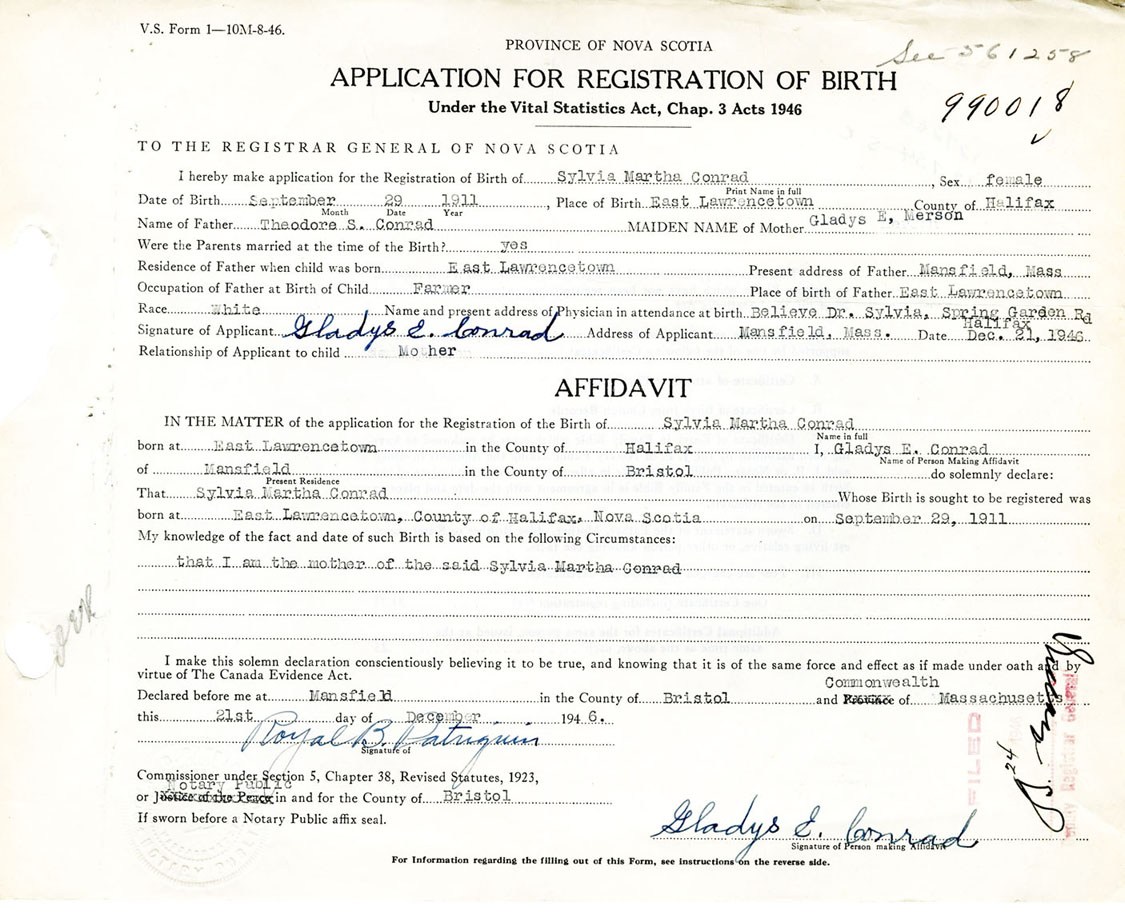 V.S. Form 1—10M-8-46.
PROVINCE OF NOVA SCOTIA
See 561258
APPLICATION FOR REGISTRATION OF BIRTH
Under the Vital Statistics Act, Chap. 3 Acts 1946
990018
TO THE REGISTRAR GENERAL OF NOVA SCOTIA
I hereby make application for the Registration of Birth of Sylvia Martha Conrad, Sex female
Print Name in full
Date of Birth September 29 1911, Place of Birth East Lawrencetown County of Halifax
Month Date Year
Name of Father Theodore S. Conrad MAIDEN NAME of Mother Gladys E, Merson
Were the Parents married at the time of the Birth? yes
Residence of Father when child was born East Lawrencetown Present address of Father Mansfield, Mass
Occupation of Father at Birth of Child Farmer Place of birth of Father East Lawrencetown
Race White Name and present address of Physician in attendance at birth Believe Dr. Sylvia, Spring Garden Rd
Halifax
Signature of Applicant Gladys E. Conrad Address of Applicant Mansfield, Mass. Date Dec. 21, 1946
Relationship of Applicant to child Mother
AFFIDAVIT
IN THE MATTER of the application for the Registration of the Birth of Sylvia Martha Conrad
Name in full
born at East Lawrencetown in the County of Halifax I, Gladys E. Conrad
Name of Person Making Affidavit
of Mansfield in the County of Bristol do solemnly declare:
Present Residence
That Sylvia Martha Conrad Whose Birth is sought to be registered was
born at East Lawrencetown, County of Halifax, Nova Scotia on September 29, 1911
My knowledge of the fact and date of such Birth is based on the following Circumstances:
that I am the mother of the said Sylvia Martha Conrad
I make this solemn declaration conscientiously believing it to be true, and knowing that it is of the same force and effect as if made under oath and by
virtue of The Canada Evidence Act.
Commonwealth
Declared before me at Mansfield in the County of Bristol and Province of Massachusetts
this 21st day of December 1946.
Royal B. Patriquin
Signature of
Commissioner under Section 5, Chapter 38, Revised Statutes, 1923,
Notary Public
or Justice of the Peace in and for the County of Bristol
If sworn before a Notary Public affix seal.
Gladys E. Conrad
Signature of Person making Affidavit
For Information regarding the filling out of this Form, see instructions on the reverse side.
FILED
24